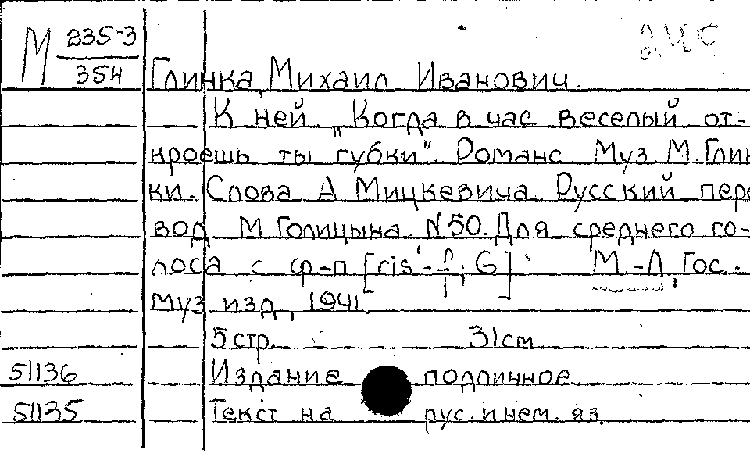 М 235-3
354
Глинка, Михаил Иванович.
К ней. „Когда в час веселый от-
кроешь ты губки". Романс Муз М. Глин
ки. Слова А Мицкевича. Русский пере
вод М Голицына. N 50. Для среднего го-
лоса с ф-п [cis'-f², G] М.-Л, Гос.
муз изд, 1941.
5 стр. 31 cm
51136 Издание подлинное
51135 Текст на рус. и нем. яз.